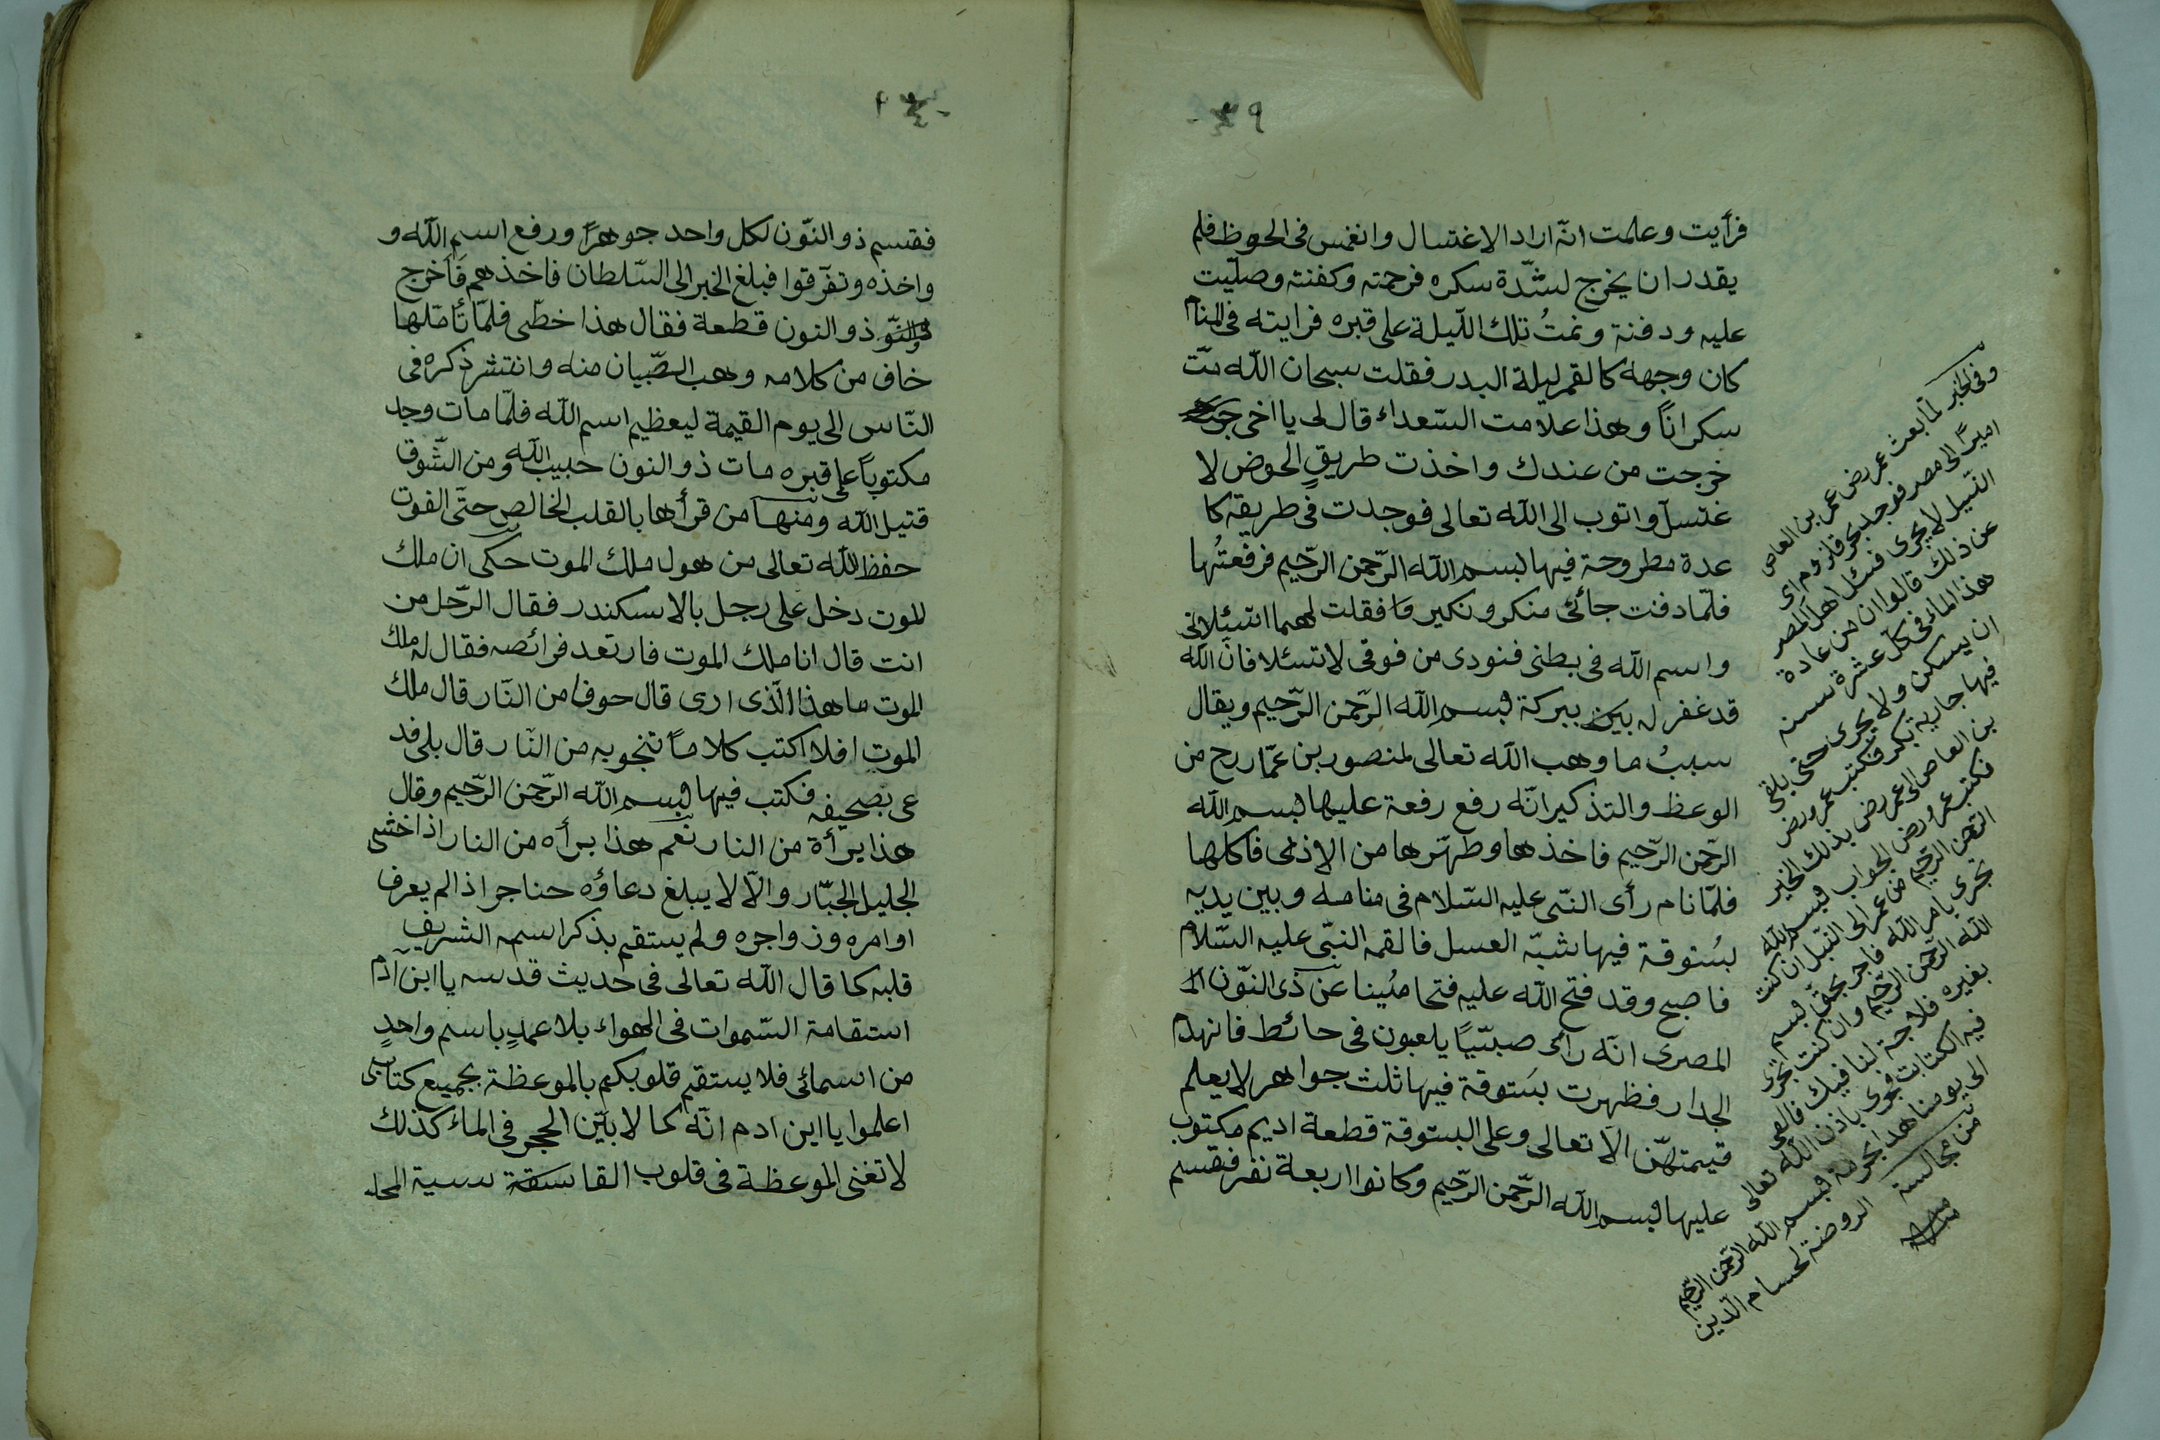 فرأيت وعلمت انّه اراد الاغتسال وانغمس فى الحوظ فلم
يقدر ان يخرج لشدّة سكره فرحمته وكفنته وصلّيت
عليه ودفنة ونمتُ تلك اللّيلة على قبره فرايته فى المنام
كان وجهه كالقمر ليلة البدر فقلت سبحان اللّه متّ
سكراناً وهذا علامت السّعداء قال لى يا اخى
خرجت من عندك واخذت طريق الحوض لا
غتسل واتوب الى اللّه تعالى فوجدت فى طريقه كا
عدة مطروحة فيها بسم اللّه الرّحمن الرّحيم فرفعتُها
فلمّا دفنت جائنى منكر ونكير فقلت لهما اتسئلانى
واسم اللّه فى بطنى فنودى من فوقى لا تسئلا فانّ اللّه
قد غفر له ببركة بسم اللّه الرّحمن الرّحيم ويقال
سببُ ما وهب اللّه تعالى لمنصور بن عمّار رح من
الوعظ والتذكير انّه رفع رقعة عليها بسم اللّه
الرّحمن الرّحيم فاخذها وطهّرها من الاذى فاكلها
فلمّا نام رأى النّبى عليه السّلام فى منامه وبين يديه
بسُتوقة فيها شبّه العسل فالقمه النبّى عليه السّلام
فاصبح وقد فتح اللّه عليه فتحا مبُينا عن ذى النّون
المصرى انّه رأى صبيّيًا يلعبون فى حائط فانهدم
الجدار فظهرت بسَتوقة فيها ثلث جواهر لا يعلم
قيمتهنّ الا تعالى وعلى البستوقة قطعة اديم مكتوب
عليها بسم اللّه الرّحمن الرّحيم وكانوا اربعة نفر فقسم
وفى الخبر لمّا بعث عمر رض عمر بن العاص
اميراً الى مصر فوجد بحر قلزوم اى
النّيل لا يجرى فسئل اهل المصر
عن ذلك قالوا ان من عادة
هذا الماء فى كلّ عشرة سنه
ان يسكن ولا يجرى حتى يلقى
فيها جارية بكر فكتب عمرو رض
بن العاص الى عمر رض بذلك الخبر
فكتب عمر رض الجواب بسم اللّه
الرّحمن الرّحيم من عمر الى النّيل ان كنت
تجرى بامر اللّه فاجر بحقّ بسم
اللّه الرّحمن الرّحيم وان كنت تجرى
بغيره فلا حجة لنا فيك فالقى
فيه الكتابت فجرى باذن اللّه تعالى
الى يومنا هذا بحرمة بسم اللّه الرّحمن الرّحيم
من مجالسة الروضة لحسام الدّين
فقسم ذو النّون لكل واحد جوهراً ورفع اسم اللّه و
واخذه وتفرّقوا فبلغ الخبر الى السّلطان فاخذهم فَاَخرج
ذو النون قطعة فقال هذا خطّى فلمّا تأمّلها
خاف من كلامه وهب الصّبيان منه وانتشر ذكره فى
النّاس الى يوم القيمة ليعظيم اسم اللّه فلمّا مات وجد
مكتوباً على قبره مات ذو النون حبيب اللّه ومن الشّوق
قتيل اللّه ومنها من قرأها بالقلب الخالص حتّى الفوت
حفظ اللّه تعالى من هول ملك الموت حكى ان ملك
الموت دخل على رجل بالاسكندر فقال الرّجل من
انت قال انا ملك الموت فارتعد فرائصه فقال له ملك
الموت ما هذا الّذى ارى قال حوفا من النّار قال ملك
الموت افلا اكتب كلاماً تنجو به من النّار قال بلى فد
عى بصحيفه فكتب فيها بسم اللّه الرّحمن الرّحيم وقال
هذا برأة من النار نعم هذا برأه من النار اذا خشى
الجليل الجبّار والّا لا يبلغ دعاؤه حناجر اذا لم يعرف
اوامره وزواجره ولم يستقم بذكر اسمه الشريف
قلبه كما قال اللّه تعالى فى حديث قدسه يا ابن آدم
استقامة السّموات فى الهواء بلا عمدٍ باسم واحدٍ
من اسمائى فلا يستقم قلوبكم بالموعظة بجميع كتابى
اعلموا يا ابن ادم انّه كما لا يليّن الحجر فى الماء كذلك
لا تغنى الموعظة فى قلوب القاسقة سية